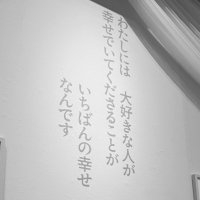 わたしには 大好きな人が
幸せでいてくださることが
いちばんの幸せ
なんです